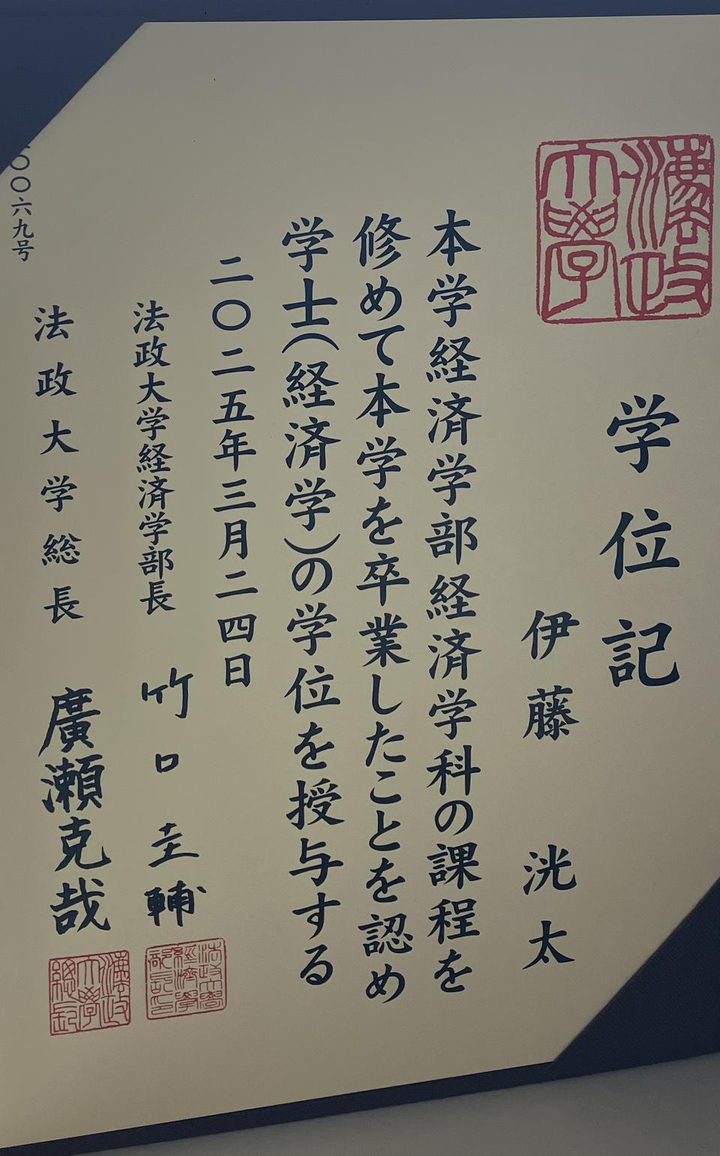 法政大學
学位記
伊藤 洸太
本学経済学部経済学科の課程を
修めて本学を卒業したことを認め
学士(経済学)の学位を授与する
二〇二五年三月二四日
法政大学経済学部長 竹口圭輔
法政大学総長 廣瀬克哉
〇〇六九号